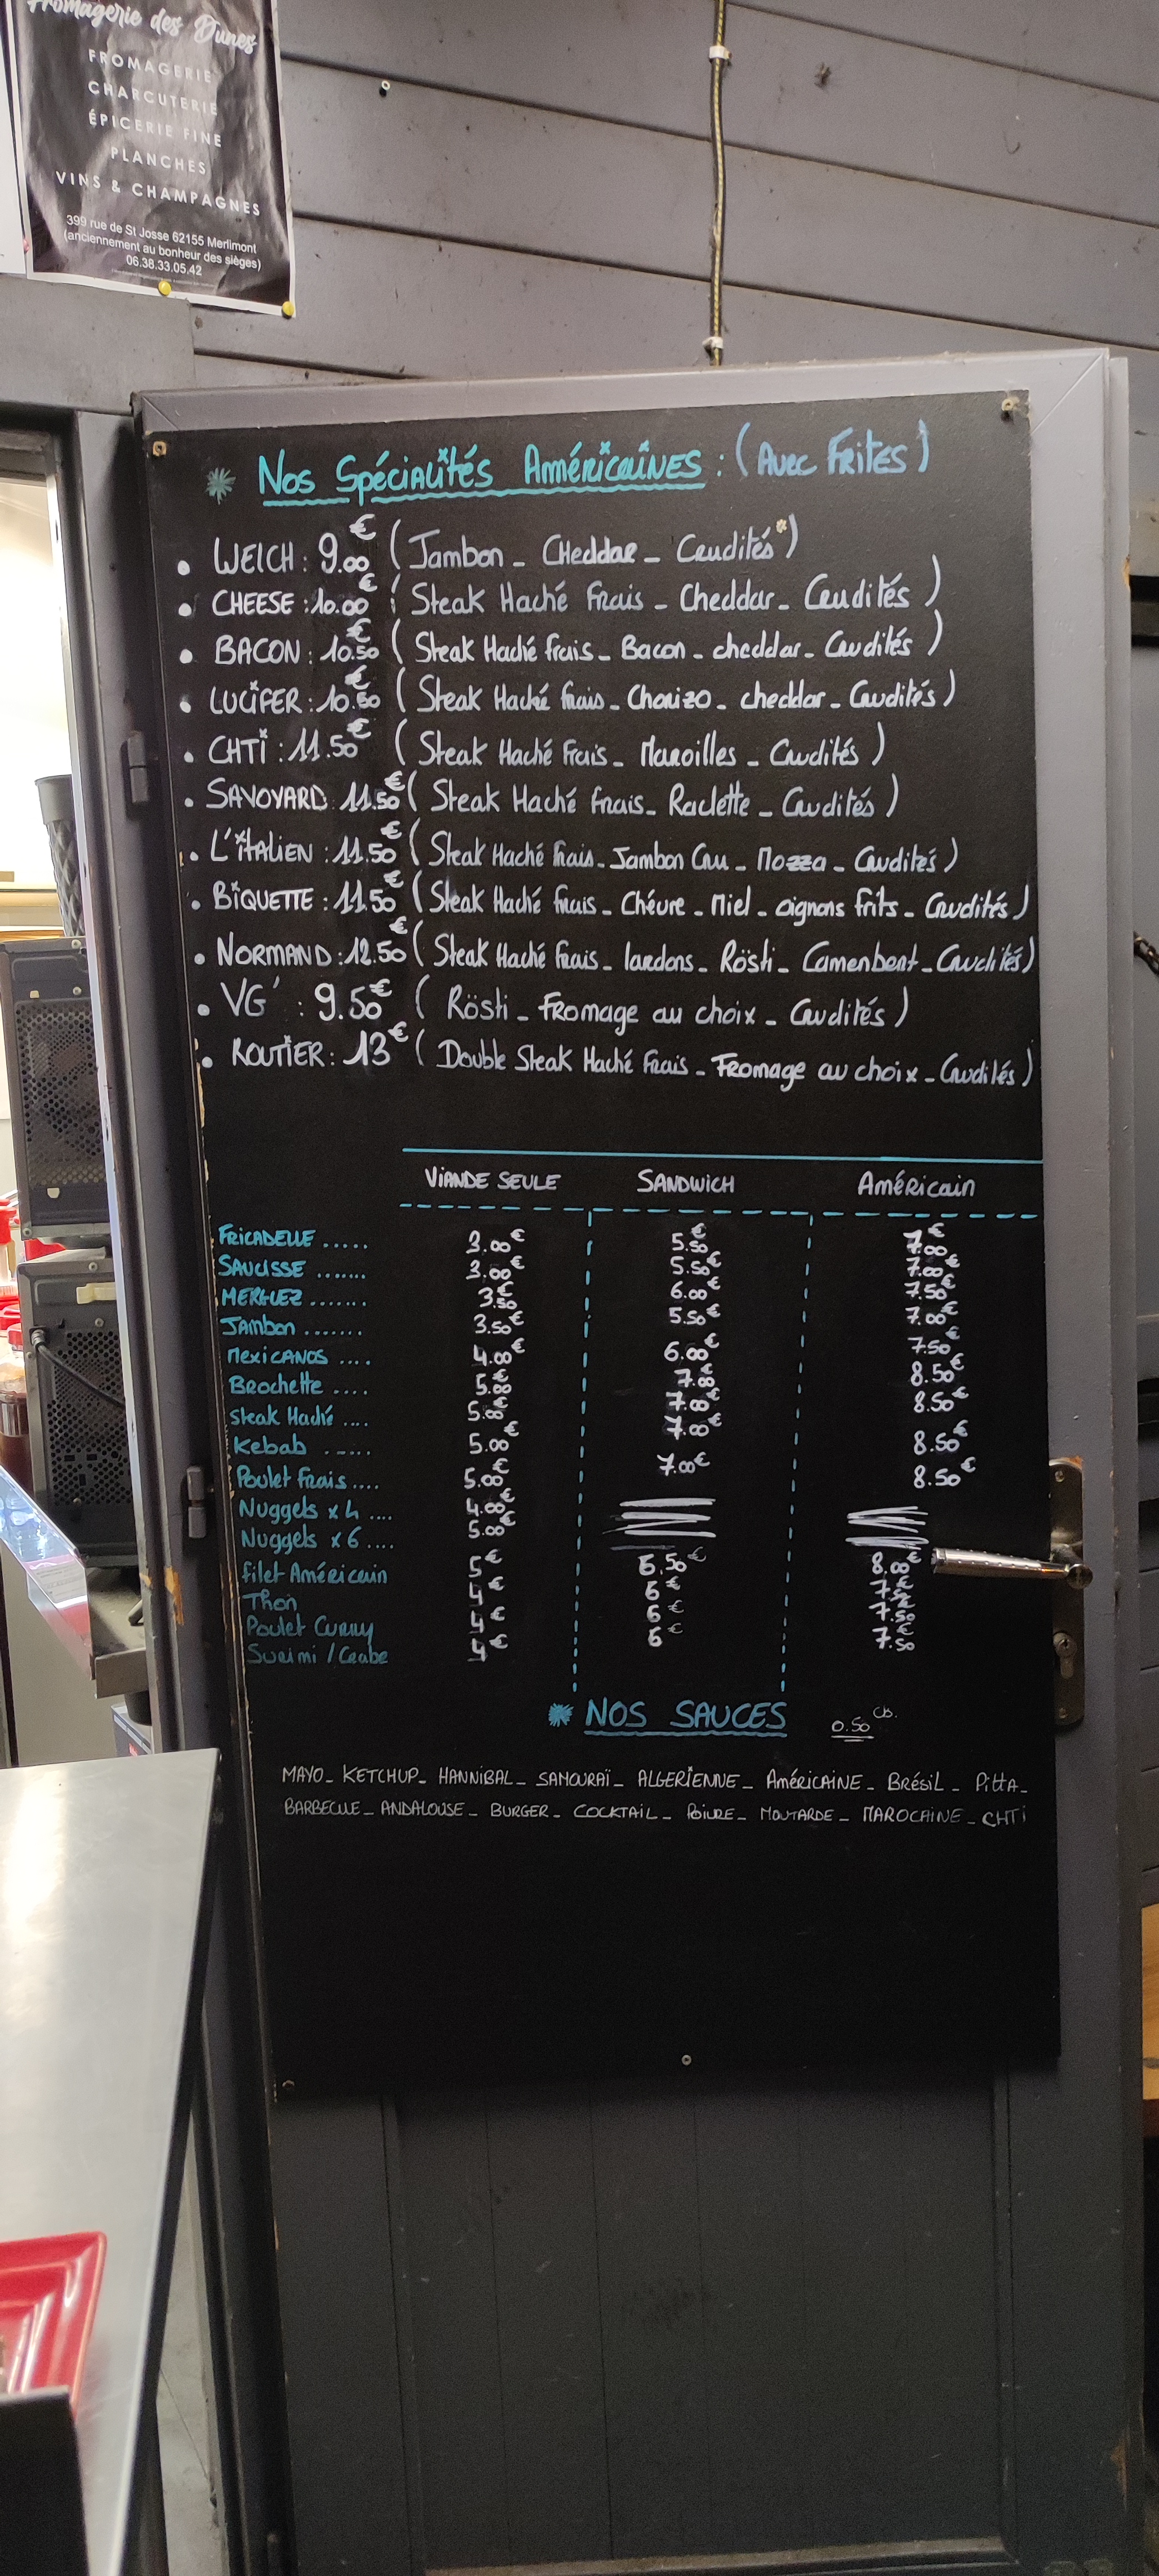 Fromagerie des Dunes
FROMAGERIE
CHARCUTERIE
ÉPICERIE FINE
PLANCHES
VINS & CHAMPAGNES
399 rue de St Josse 62155 Merlimont
(anciennement au bonheur des sièges)
06.38.33.05.42
* Nos Spécialités Américaines : (Avec Frites)
• WELCH : 9.00€ (Jambon - Cheddar - Crudités*)
• CHEESE : 10.00€ (Steak Haché Frais - Cheddar - Crudités)
• BACON : 10.50€ (Steak Haché frais - Bacon - cheddar - Crudités)
• LUCIFER : 10.50€ (Steak Haché frais - Chorizo - cheddar - Crudités)
• CHTI : 11.50€ (Steak Haché Frais - Maroilles - Crudités)
• SAVOYARD 11.50€ (Steak Haché Frais - Raclette - Crudités)
• L'ITALIEN : 11.50€ (Steak Haché frais - Jambon Cru - Mozza - Crudités)
• BIQUETTE : 11.50€ (Steak Haché frais - Chévre - Miel - oignons frits - Crudités)
• NORMAND : 12.50€ (Steak Haché frais - lardons - Rösti - Camenbert - Crudités)
• VG' : 9.50€ (Rösti - Fromage au choix - Crudités)
• ROUTIER : 13€ (Double Steak Haché Frais - Fromage au choix - Crudités)
VIANDE SEULE SANDWICH Américain
FRICADELLE ..... 3.00€ 5.50€ 7.00€
SAUCISSE ....... 3.00€ 5.50€ 7.00€
MERGUEZ ....... 3.50€ 6.00€ 7.50€
Jambon ....... 3.50€ 5.50€ 7.00€
MEXICANOS .... 4.00€ 6.00€ 7.50€
Brochette .... 5.00€ 7.00€ 8.50€
Steak Haché .... 5.00€ 7.00€ 8.50€
Kebab ..... 5.00€ 7.00€ 8.50€
Poulet Frais .... 5.00€ 7.00€ 8.50€
Nuggets x 4 .... 4.00€
Nuggets x 6 .... 5.00€
filet Américain 5€ 6.50€ 8.00€
Thon 4€ 6€ 7.50€
Poulet Curry 4€ 6€ 7.50€
Surimi / Crabe 4€ 6€ 7.50€
* NOS SAUCES 0.50 Cts.
MAYO - KETCHUP - HANNIBAL - SAMOURAÏ - ALGERIENNE - Américaine - Brésil - Pitta -
BARBECUE - ANDALOUSE - BURGER - COCKTAIL - Poivre - MOUTARDE - MAROCAINE - CHTI